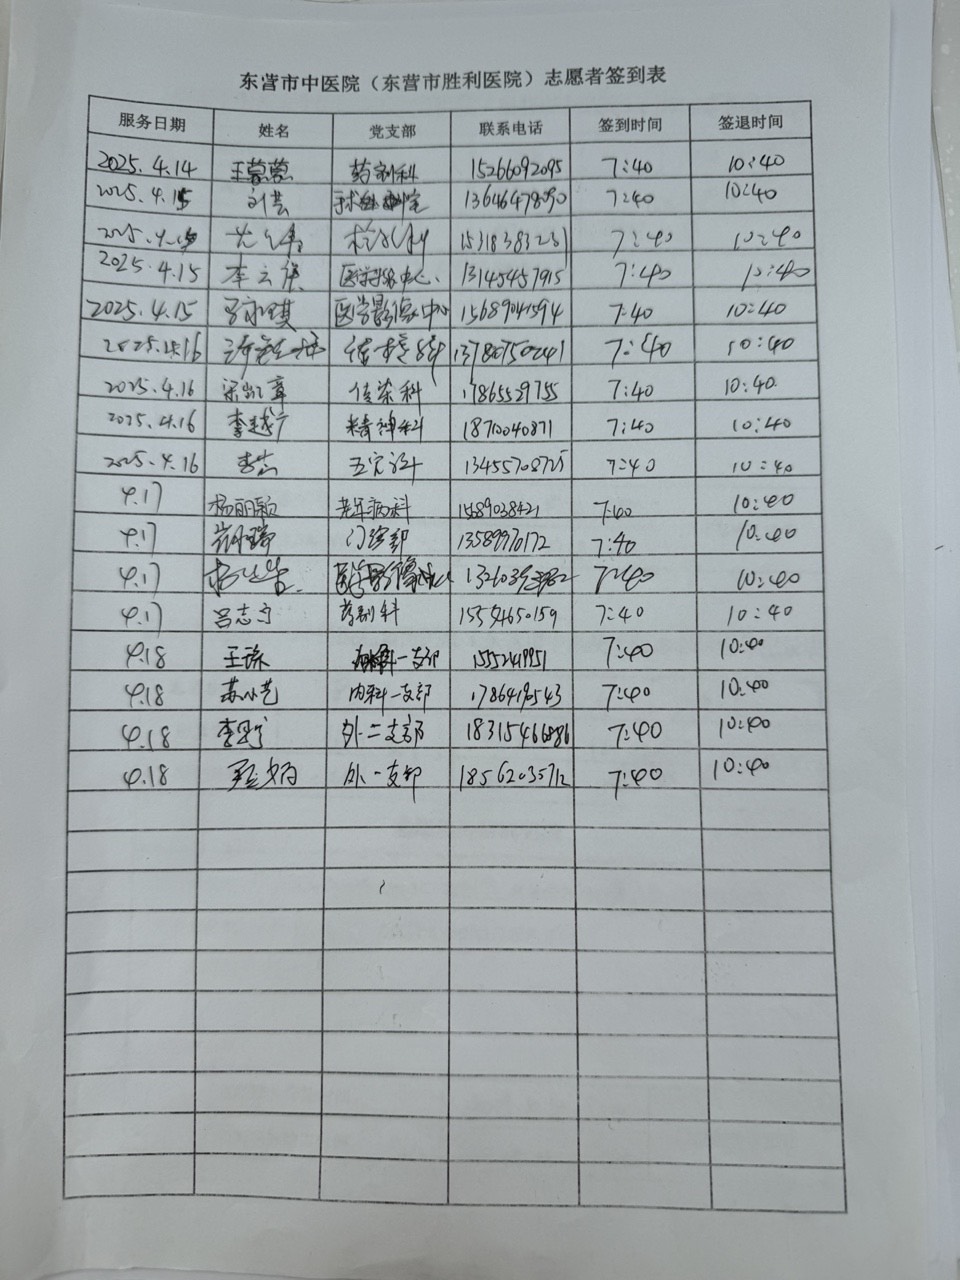 东营市中医院（东营市胜利医院）志愿者签到表
服务日期 姓名 党支部 联系电话 签到时间 签退时间
2025.4.14 王蒙蒙 药剂科 15266092095 7:40 10:40
2025.4.15 刘芸 13646478090 7:40 10:40
2025.4.15 15318383231 7:40 10:40
2025.4.15 李云 中心 13145457915 7:40 10:40
2025.4.15 吕永琪 医学影像中心 15689041594 7:40 10:40
2025.4.16 13780750241 7:40 10:40
2025.4.16 梁凯章 传染科 17865529755 7:40 10:40
2025.4.16 李越广 精神科 1870040871 7:40 10:40
2025.4.16 李 五官科 13455708725 7:40 10:40
4.17 杨丽颖 老年病科 15689038421 7:40 10:40
4.17 门诊部 13589970172 7:40 10:40
4.17 杨 医学影像 7:40 10:40
4.17 吕志 药剂科 15554650159 7:40 10:40
4.18 王 一支部 15552419951 7:40 10:40
4.18 苏小艺 内科一支部 17864190543 7:40 10:40
4.18 李 外二支部 18315466886 7:40 10:40
4.18 外一支部 18562035712 7:40 10:40